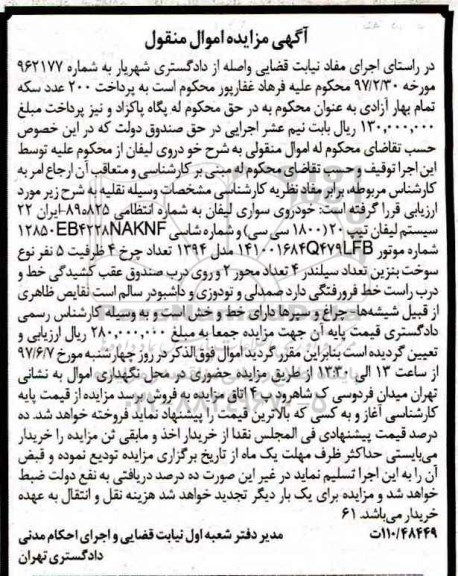 آگهی مزایده اموال منقول
در راستای اجرای مفاد نیابت قضایی واصله از دادگستری شهریار به شماره ۹۶۲۱۷۷
مورخه ۹۷/۲/۳۰ محکوم علیه فرهاد غفارپور محکوم است به پرداخت ۲۰۰ عدد سکه
تمام بهار آزادی به عنوان محکوم به در حق محکوم له پگاه پاکزاد و نیز پرداخت مبلغ
۱۳۰,۰۰۰,۰۰۰ ریال بابت نیم عشر اجرایی در حق صندوق دولت که در این خصوص
حسب تقاضای محکوم له اموال منقولی به شرح خودروی لیفان از محکوم علیه توسط
این اجرا توقیف و حسب تقاضای محکوم له مبنی بر کارشناسی و متعاقب آن ارجاع امر به
کارشناس مربوطه، برابر مفاد نظریه کارشناسی مشخصات وسیله نقلیه به شرح زیر مورد
ارزیابی قررا گرفته است: خودروی سواری لیفان به شماره انتظامی ۸۲۵ه۸۹-ایران ۲۲
سیستم لیفان تیپ ۶۲۰(۱۸۰۰ سی سی) و شماره شاسی ۱۲۸۵۰EB۴۲۲۸NAKNF
شماره موتور ۱۴۱۰۰۱۶۸۴Q۴۷۹LFB مدل ۱۳۹۴ تعداد چرخ ۴ ظرفیت ۵ نفر نوع
سوخت بنزین تعداد سیلندر ۴ تعداد محور ۲ و روی درب صندوق عقب کشیدگی خط و
درب راست خط فرورفتگی دارد صمدلی و تودوزی و داشبودر سالم است نقایص ظاهری
از قبیل شیشه‌ها- چراغ و سپرها دارای خط و خش است و به وسیله کارشناس رسمی
دادگستری قیمت پایه آن جهت مزایده جمعا به مبلغ ۲۸۰,۰۰۰,۰۰۰ ریال ارزیابی و
تعیین گردیده است بنابراین مقرر گردید اموال فوق‌الذکر در روز چهارشنبه مورخ ۹۷/۶/۷
از ساعت ۱۳ الی ۱۳:۳۰ از طریق مزایده حضوری در محل نگهداری اموال به نشانی
تهران میدان فردوسی ک شاهرودب ۴ اتاق مزایده به فروش برسد مزایده از قیمت پایه
کارشناسی آغاز و به کسی که بالاترین قیمت را پیشنهاد نماید فروخته خواهد شد. ده
درصد قیمت پیشنهادی فی المجلس نقدا از خریدار اخذ و مابقی ثمن مزایده را خریدار
می‌بایستی حداکثر ظرف مهلت یک ماه از تاریخ برگزاری مزایده تودیع نموده و قبض
آن را به این اجرا تسلیم نماید در غیر این صورت ده درصد دریافتی به نفع دولت ضبط
خواهد شد و مزایده برای یک بار دیگر تجدید خواهد شد هزینه نقل و انتقال به عهده
خریدار می‌باشد. ۶۱
۱۱۰/۴۸۴۴۹ت مدیر دفتر شعبه اول نیابت قضایی و اجرای احکام مدنی
دادگستری تهران